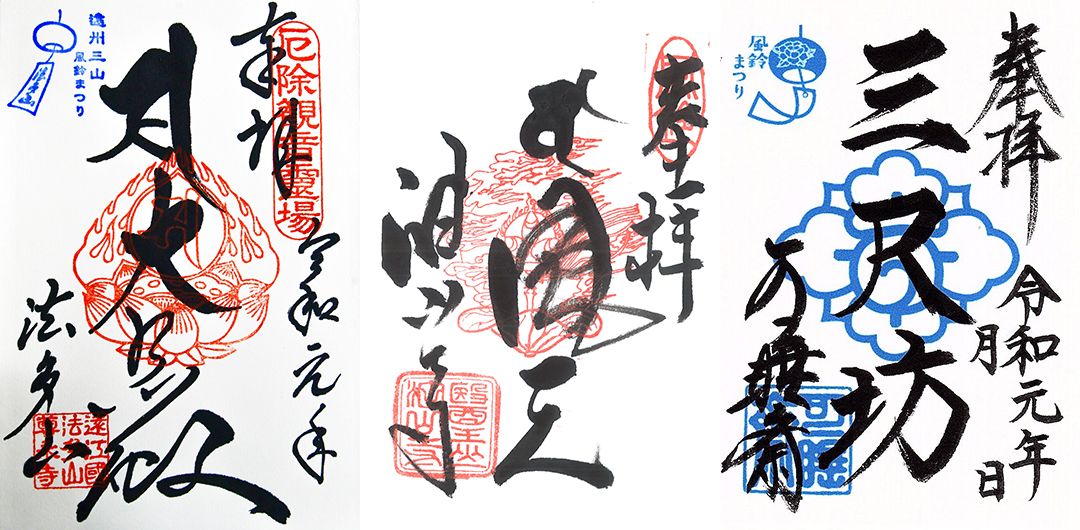 厄除観音霊場
奉拝
令和元年
大悲殿
法多山
遠江國
法多山
尊永寺
遠州三山
風鈴まつり
奉拝
油山寺
醫王山
油山寺
奉拝
令和元年
月 日
三尺坊
可睡斎
風鈴
まつり